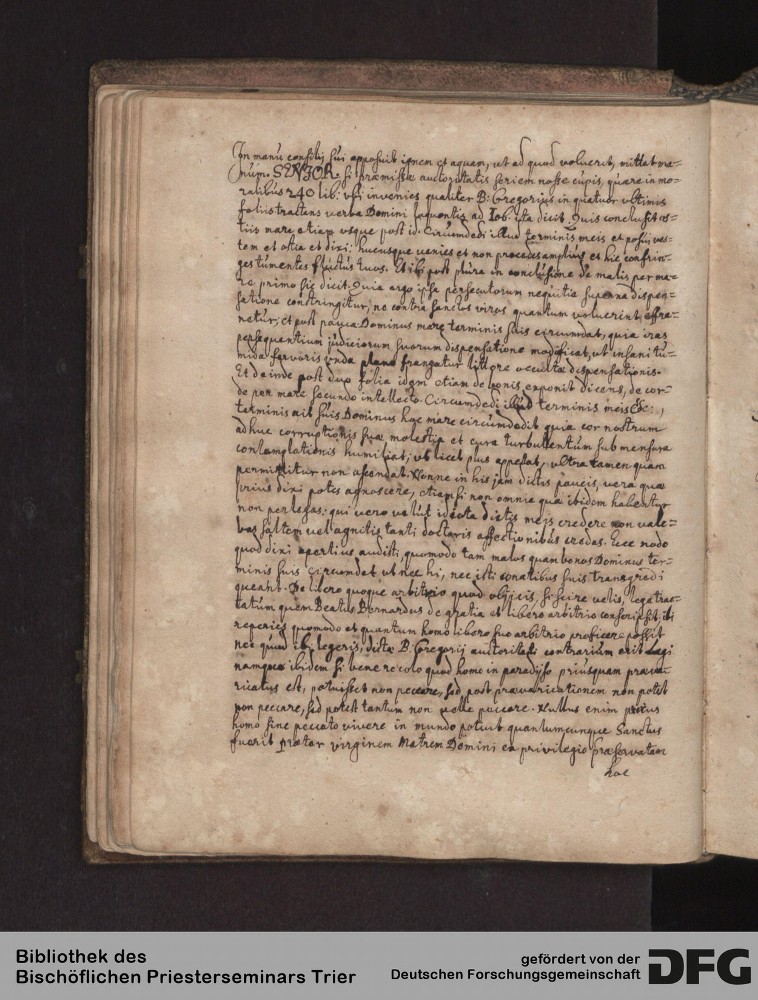 In manu consilij sui apposuit ignem et aquam, ut ad quod voluerit, mittat ma=
num. SENIOR. Si præmissæ auctoritatis seriem nosse cupis, quære in mo=
ralibus 240 lib: ubi invenies qualiter B: Gregorius in quatuor ultimis
folijs tractans verba Domini loquentis ad Iob: ita dicit. Quis conclusit os=
tiis mare etiam usque post id: Circumdedi illud terminis meis et posui vec=
tem et ostia et dixi: hucusque venies et non procedes amplius et hic confrin=
ges tumentes fluctus tuos. Et ibi post plura in conclusione de malis per ma=
re primo sic dicit. Quia ergo ipsa persecutorum nequitia superna dispen=
satione constringitur, ne contra sanctos viros quantum voluerint, effre=
netur; et post pauca Dominus mare terminis suis circumdat, quia iras
persequentium judiciorum suorum dispensatione modificat, ut insani tu=
mida fervoris unda plano frangatur littore occultæ dispensationis.
Et deinde post duo folia idem etiam de bonis exponit dicens, de cor=
de per mare secundo intellecto. Circumdedi illud terminis meis &c:,
terminis ait suis Dominus hoc mare circumdedit quia cor nostrum
adhuc corruptionis suæ molestia et cura turbulentum sub mensura
contemplationis humiliat; ut licet plus appetat, ultra tamen quam
permittitur non ascendat. Nonne in his jam dictis paucis, vera quæ
prius dixi potes agnoscere, etiamsi non omnia quæ ibidem habentur
non perlegas: qui vero velut idiota dictis meis credere non vale=
bas saltem vel agnitis tanti doctoris assertionibus credas. Ecce modo
quod dixi apertius audisti, quomodo tam malos quam bonos Dominus ter=
minis suis circumdet ut nec hi, nec isti conatibus suis transgredi
queant. De libero quoque arbitrio quod objicis, si scire velis, lege trac=
tatum quem Beatus Bernardus de gratia et libero arbitrio conscripsit, ibi
reperies quomodo et quantum homo libero suo arbitrio proficere possit
nec quod ibi legeris, dictæ B. Gregorij autoritati contrarium erit Legi
namque ibidem si bene recolo quod homo in paradiso priusquam præva=
ricatus est, potuisset non peccare, sed post prævaricationem non potest
non peccare, sed potest tantum non velle peccare. Nullus enim
homo sine peccato vivere in mundo potuit quantumcunque Sanctus
fuerit præter virginem Matrem Domini ex privilegio præservatam
hoc
Bibliothek des
Bischöflichen Priesterseminars Trier
gefördert von der
Deutschen Forschungsgemeinschaft
DFG